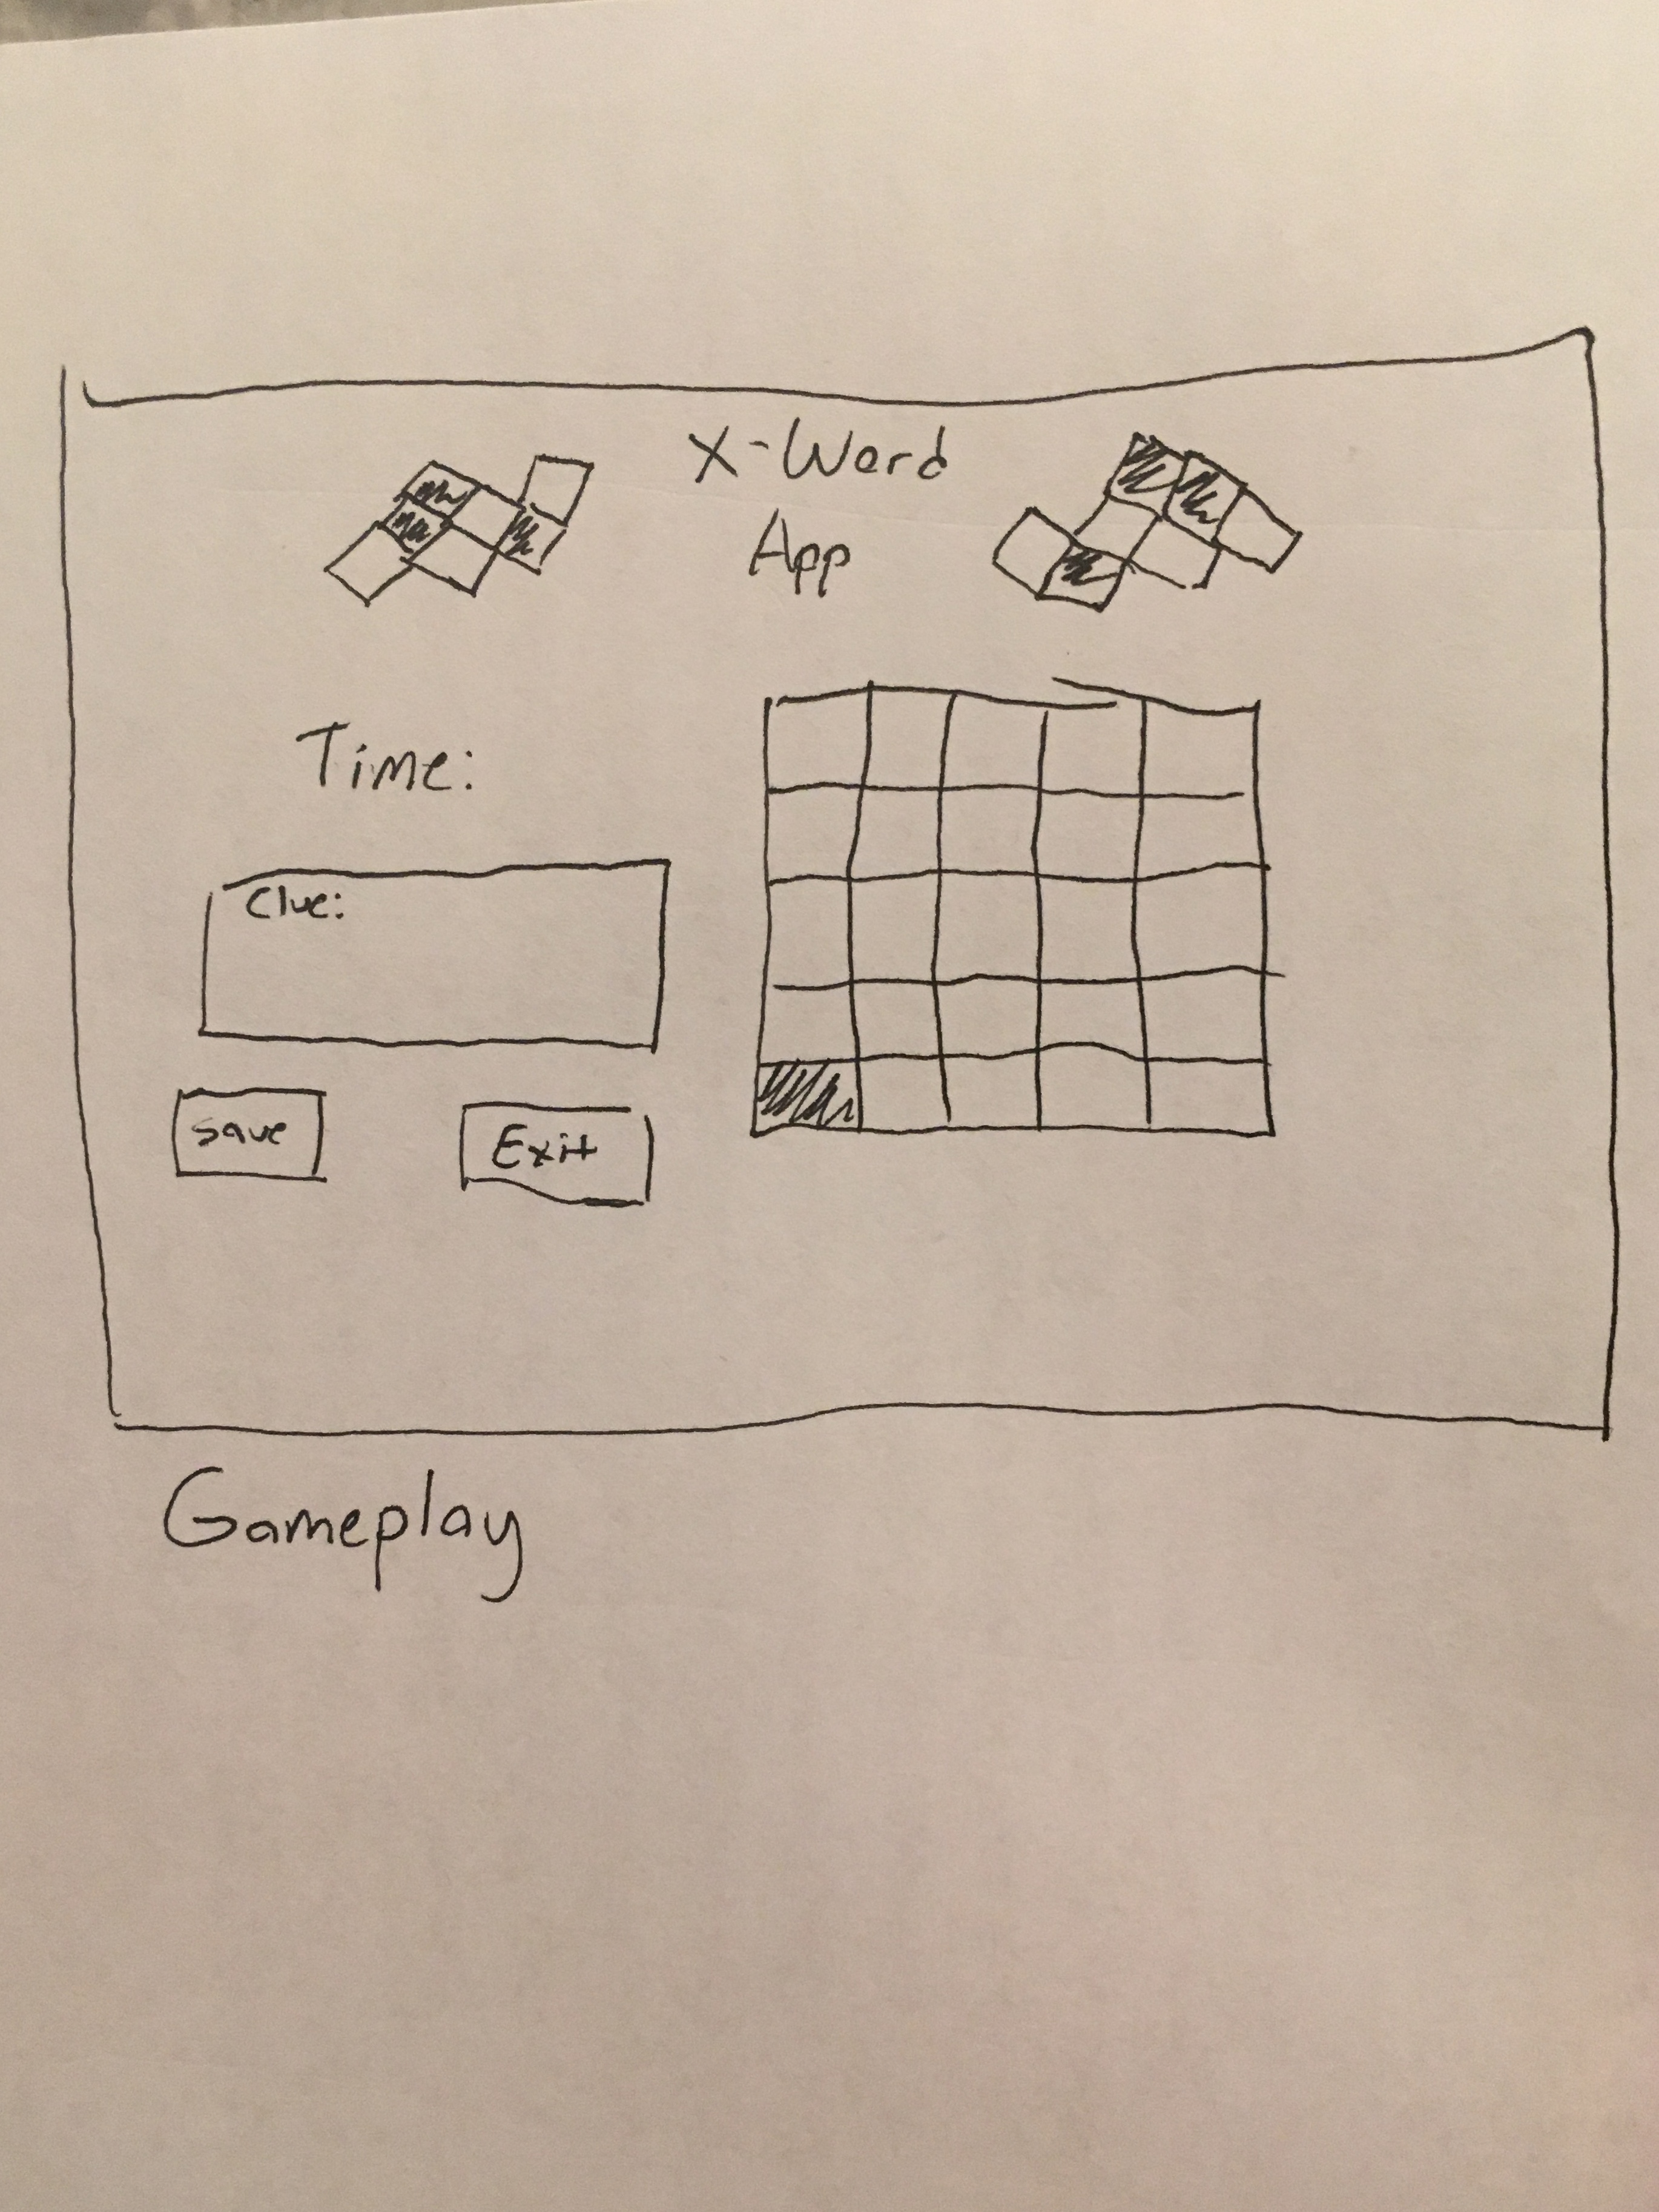 X-Word
App
Time:
Clue:
Save
Exit
Gameplay